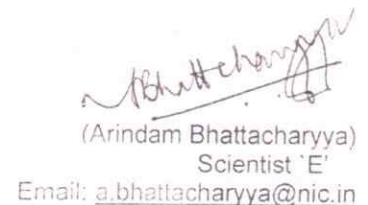 ABhattcharyya
(Arindam Bhattacharyya)
Scientist `E'
Email: a.bhattacharyya@nic.in